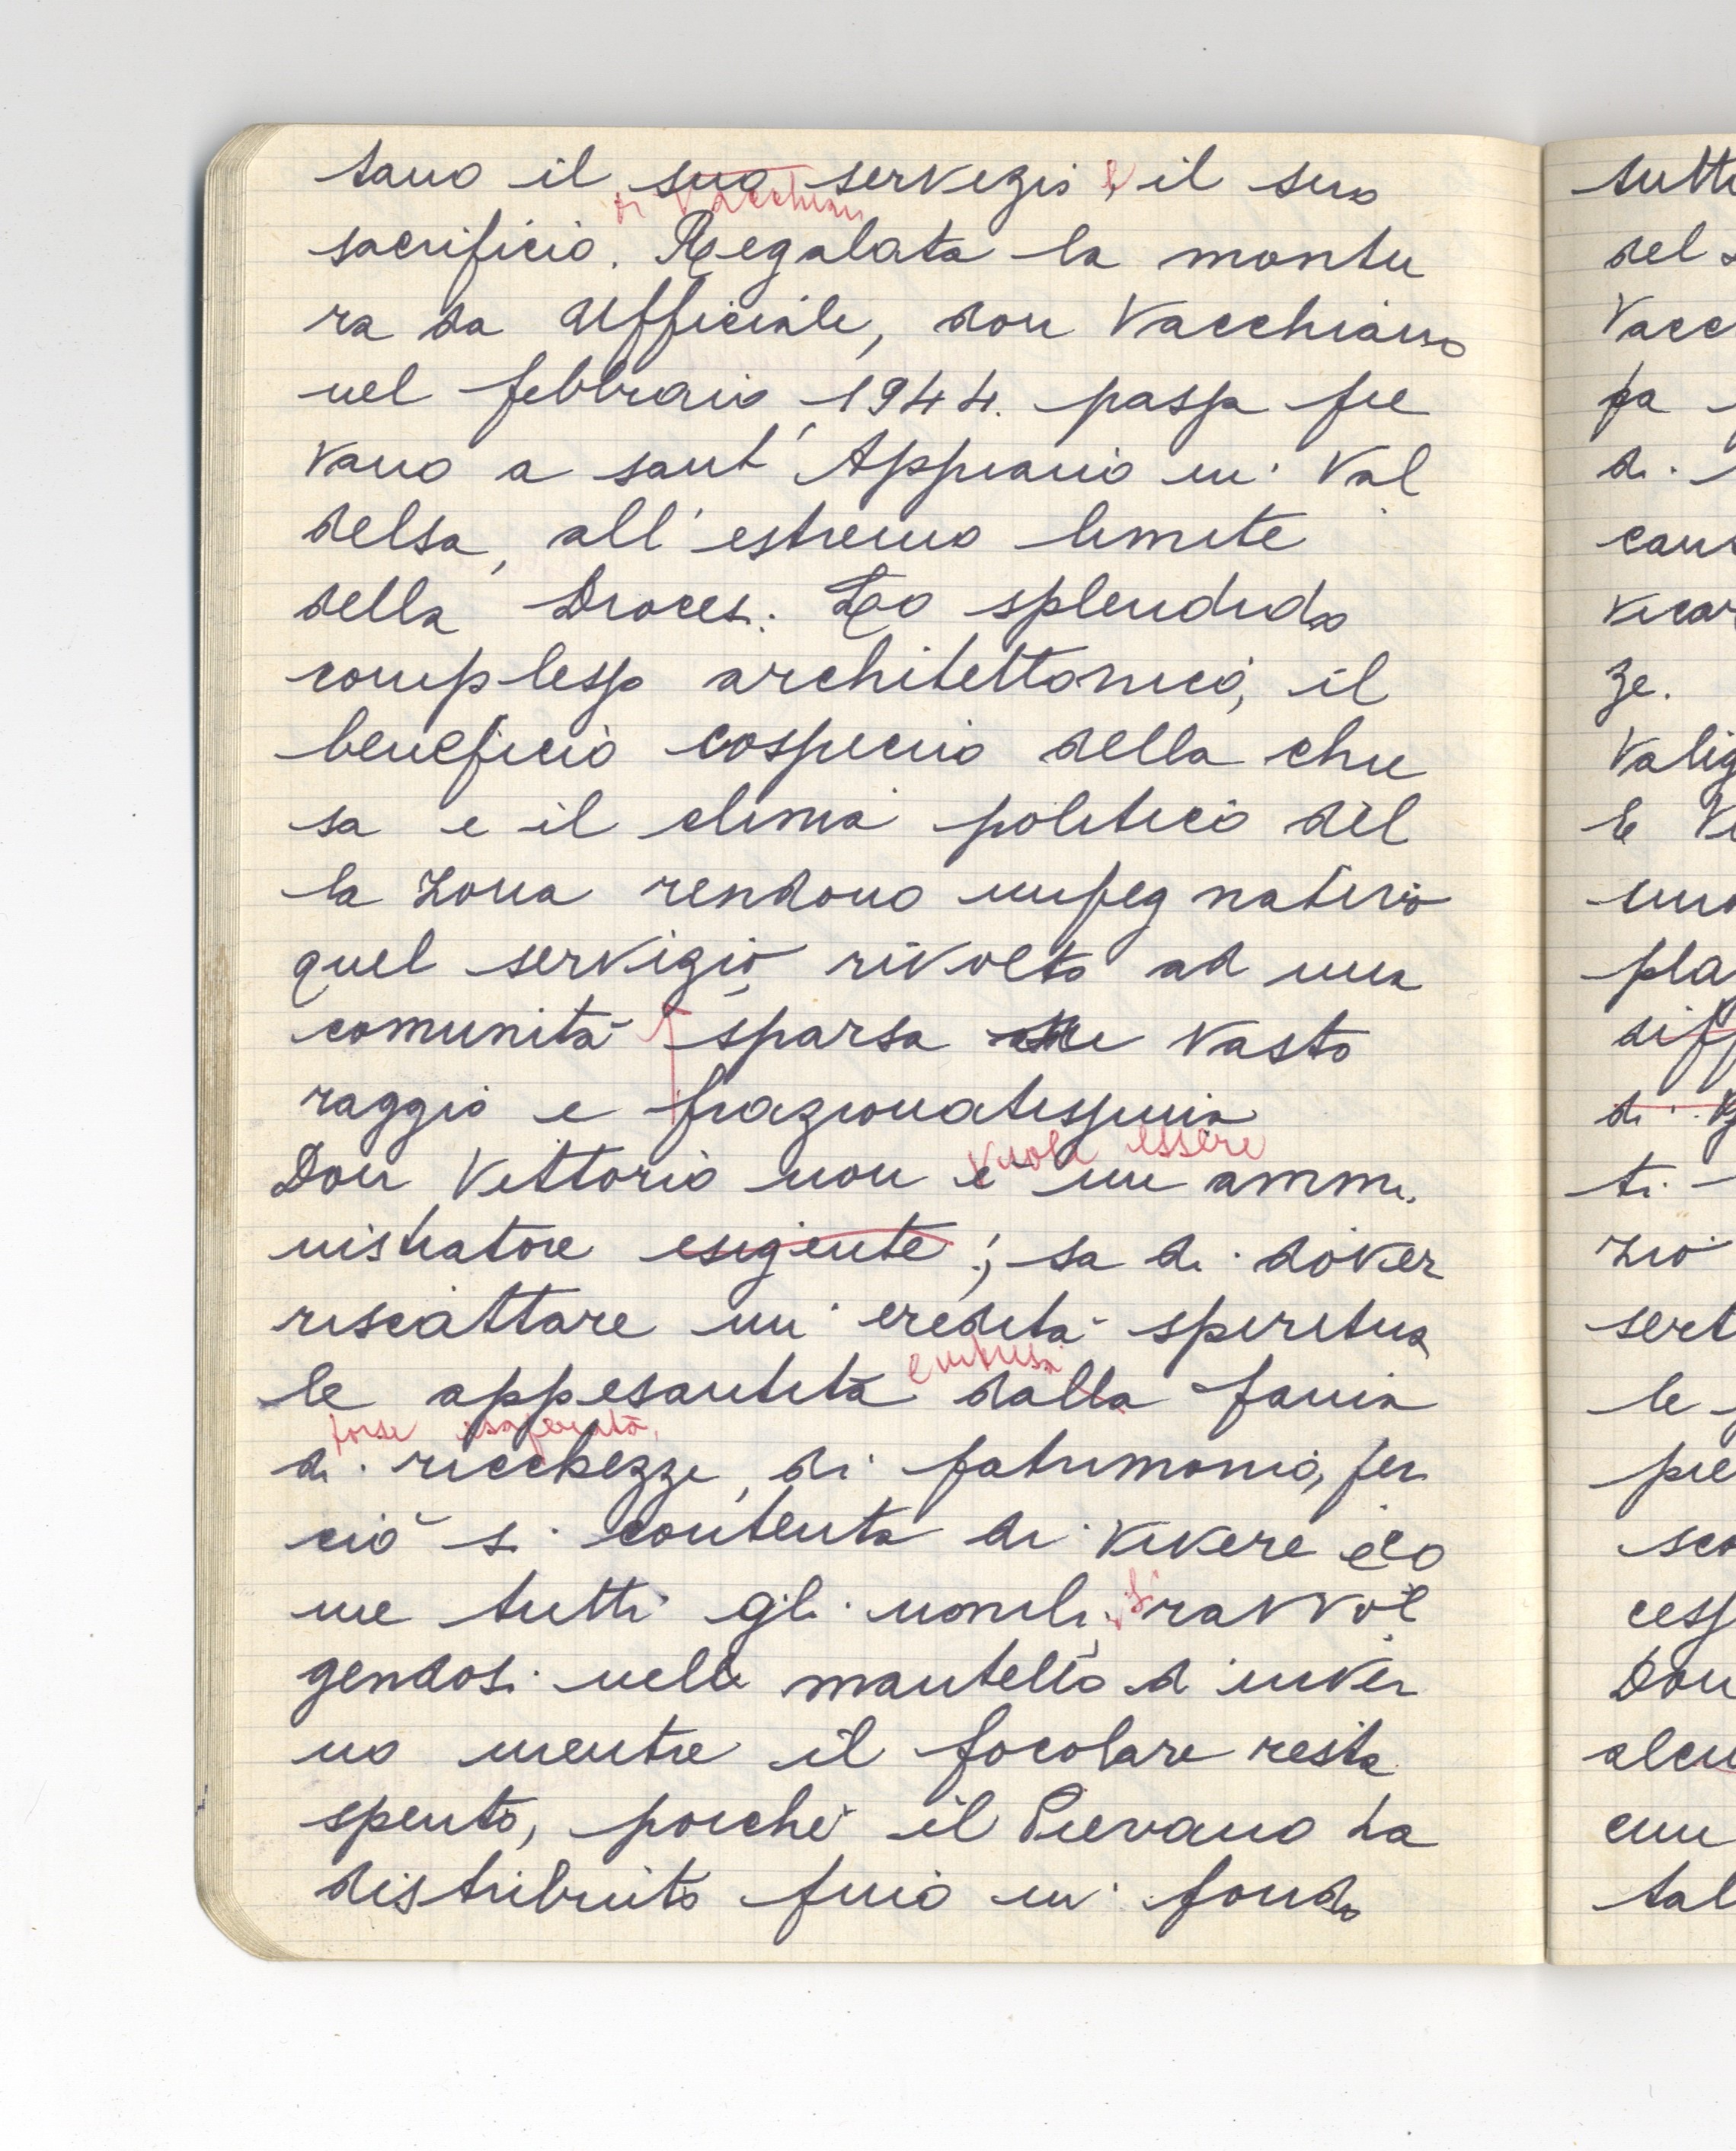 tano il suo servizio e il suo
di Vacchiano
sacrificio. Regalata la montu
ra da ufficiale, don Vacchiano
nel febbraio 1944. passa pie
vano a sant'Appiano in Val
delsa, all'estremo limite
della Dioces. Lo splendido
complesso architettonico, il
beneficio cospicuo della chie
sa e il clima politico del
la zona rendono impegnativo
quel servizio, rivolto ad una
comunità sparsa vasto
raggio e frazionatissima
vuole essere
Don Vittorio non è un ammi.
nistratore esigente; sa di dover
riscattare un'eredità spiritua
le appesantita dalla fama
forse esagerata,
di ricchezze, di patrimonio, per
ciò si contenta di vivere co
me tutti gli umili, ravvol
gendosi nel mantello d'inver
no mentre il focolare resta
spento, poiché il Pievano ha
distribuito fino in fondo
tutti
del
Vacc
pa
di.
can
vicar
ze.
Valig
le
uno
pla
diff
di.
ti.
zio
sert
le
pie
sco
cess
Don
alcu
cun
tal